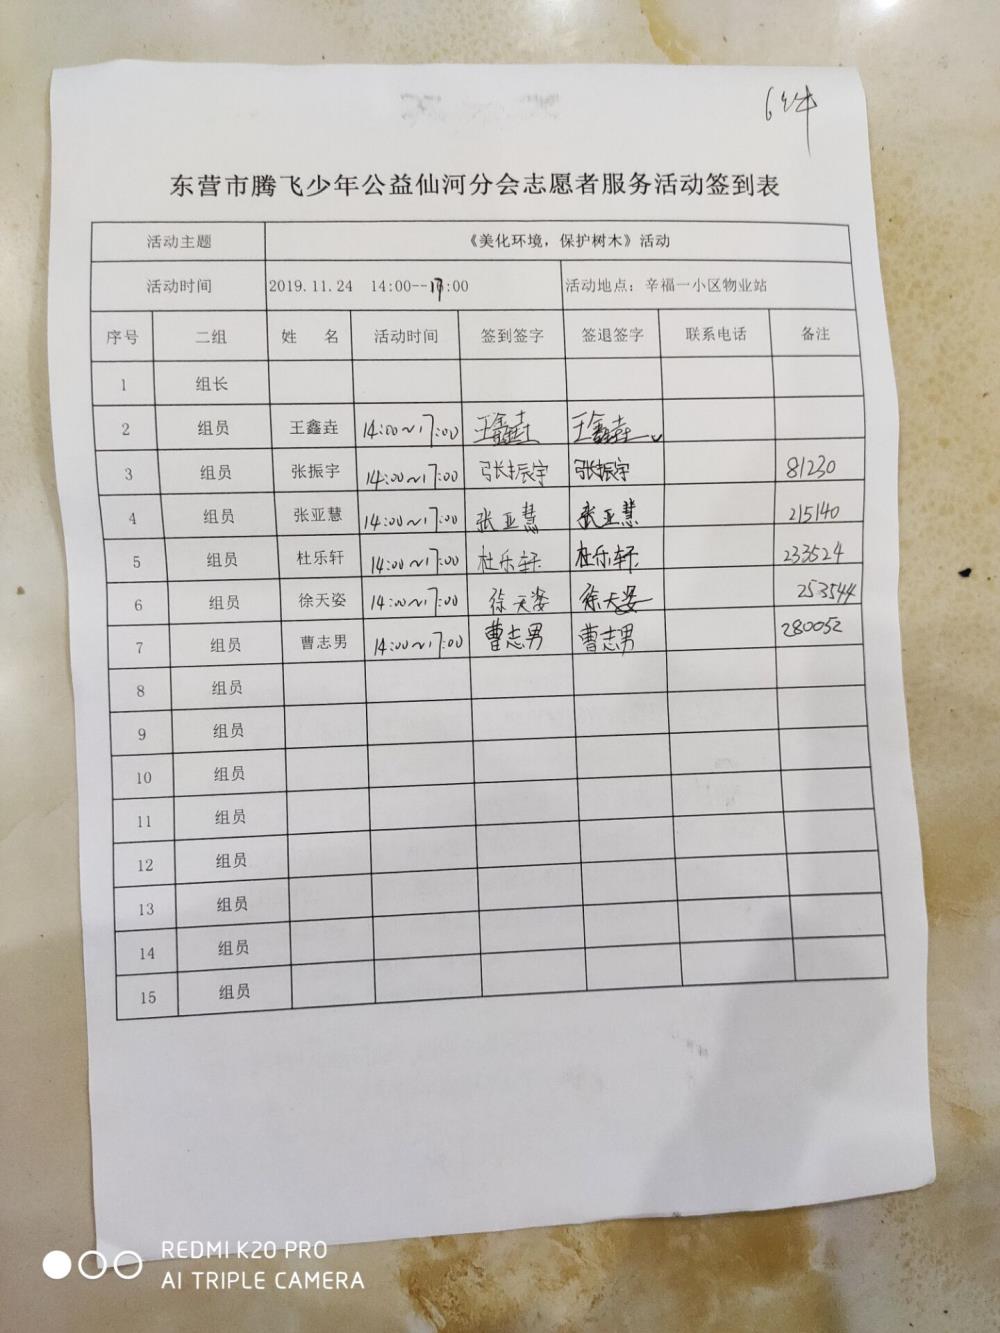 6件
东营市腾飞少年公益仙河分会志愿者服务活动签到表
活动主题 《美化环境，保护树木》活动
活动时间 2019.11.24 14:00--17:00 活动地点：辛福一小区物业站
序号 二组 姓 名 活动时间 签到签字 签退签字 联系电话 备注
1 组长
2 组员 王鑫垚 14:00~17:00 王鑫垚 王鑫垚
3 组员 张振宇 14:00~17:00 张振宇 张振宇 81230
4 组员 张亚慧 14:00~17:00 张亚慧 张亚慧 215140
5 组员 杜乐轩 14:00~17:00 杜乐轩 杜乐轩 233524
6 组员 徐天姿 14:00~17:00 徐天姿 徐天姿 253544
7 组员 曹志男 14:00~17:00 曹志男 曹志男 280052
8 组员
9 组员
10 组员
11 组员
12 组员
13 组员
14 组员
15 组员
REDMI K20 PRO
AI TRIPLE CAMERA